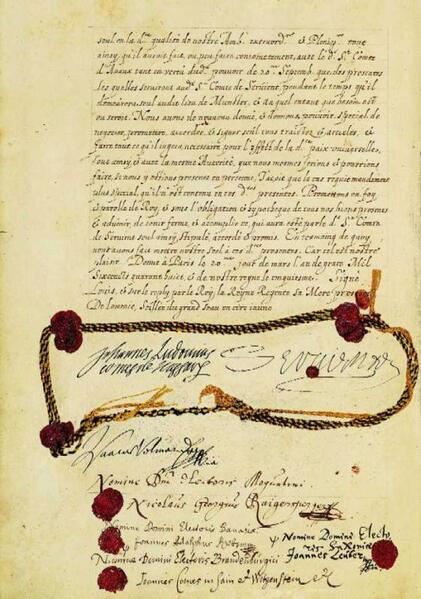 seul en la d. qualité de nostre Amb. extraord. & Plenip. tout
ainsy, qu'il auroit fait, ou peu faire conjointement, avec le d. Sr. Comte
d'Avaux tant en vertu dud. pouvoir de 20. Septemb. que des presentes
les quelles serviront aud. Sr. Comte de Servient, pendant le temps qu'il
demeurera seul audit lieu de Munster, & du quel entant que besoin est
ou seroit Nous avons de nouveau donné, & donnons, pouvoir, special de
negocier, promettre, accorder, & signer seul tous traittez & articles, &
faire tout ce qu'il jugera necessaire pour l'effet de la d. paix universelle,
tout ainsy, & avec la mesme Autorité, que nous mesmes ferions & pourrions
faire, si nous y estions presens en personne, le cas requis mandement
plus special, qu'il n'est contenu en ces d. presentes. Promettons en foy
& parolle de Roy, & sous l'obligation & hypotheque de tous nos biens presens
& advenir, de tenir ferme, & accomplir ce, qui aura esté par le d. Sr. Comte
de Servient seul ainsy stipulé, accordé & promis. En tesmoing de quoy
nous avons fait mettre nostre seel à ces d. presentes. Car tel est nostre
plaisir Donné à Paris le 20. jour de mars l'an de grace Mil
Sixcents quarante huict, & de nostre regne le cinquiesme. Signé
Louis, & sur le reply par le Roy, la Reyne Regente sa Mere
De Lomenie, Scellée du grand seau en cire jaune
Johannes Ludovicus
comes de Nassau
Servient
Isaac Volmar
Nomine Dni Electoris Moguntini
Nicolaus Georgius Raigersperger
Nomine Domini Electoris Bavariae
Joannes Adolphus
Nomine Domini Electo
ris Saxoniae
Joannes Leuber
Nomine Domini Electoris Brandenburgici
Joannes Comes in Sain et Witgenstein